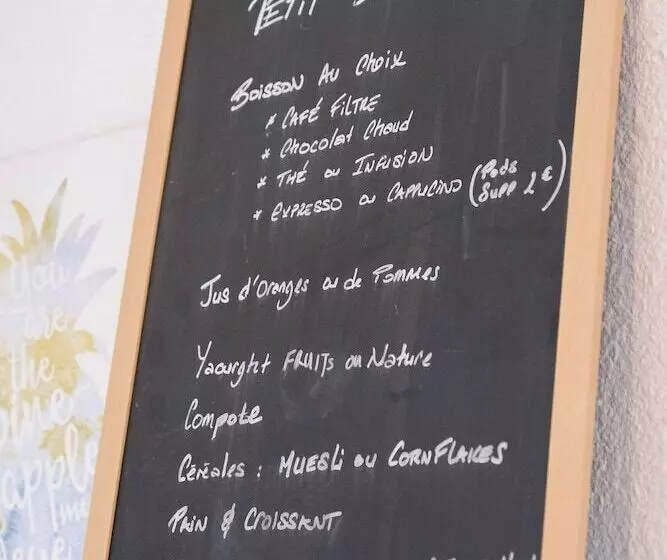 PETIT
BOISSON AU CHOIX
* CAFÉ FILTRE
* Chocolat Chaud
* THÉ ou INFUSION
* EXPRESSO ou CAPPUCINO (Pods Supp 2€)
Jus d'Oranges ou de Pommes
Yaourght FRUITS ou Nature
Compote
Céréales : MUESLi ou CORNFLAKES
PAIN & CROISSANT
You
are
the
pine
apple